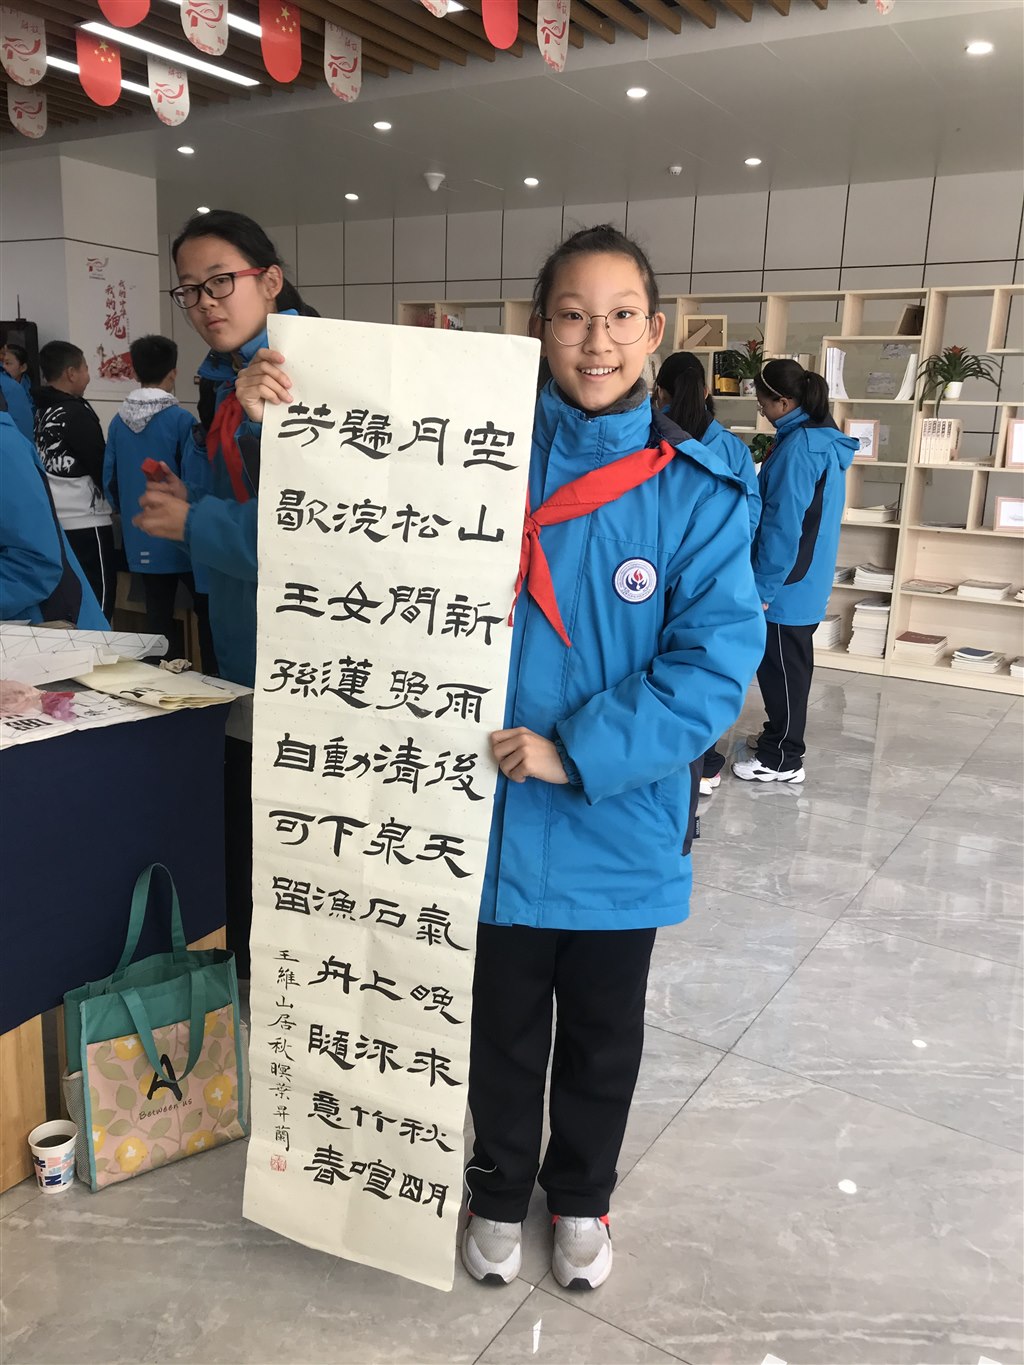 空山新雨後天氣晚來秋明
月松間照清泉石上流竹喧
歸浣女蓮動下漁舟隨意春
芳歇王孫自可留
王維山居秋暝葉昇蘭
A
Between us
我的魂